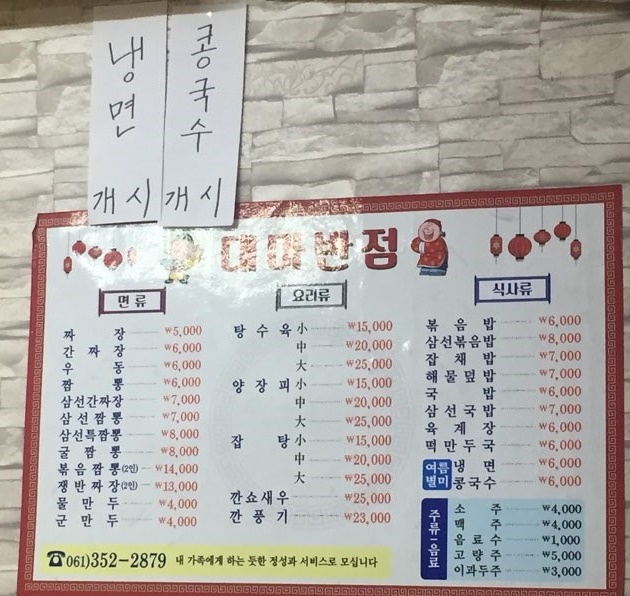 냉면 개시
콩국수 개시
대마반점
면류
짜장 ₩5,000
간짜장 ₩6,000
우동 ₩6,000
짬뽕 ₩6,000
삼선간짜장 ₩7,000
삼선짬뽕 ₩7,000
삼선특짬뽕 ₩8,000
굴짬뽕 ₩8,000
볶음짬뽕(2인) ₩14,000
쟁반짜장(2인) ₩13,000
물만두 ₩4,000
군만두 ₩4,000
요리류
탕수육 小 ₩15,000
中 ₩20,000
大 ₩25,000
양장피 小 ₩15,000
中 ₩20,000
大 ₩25,000
잡탕 小 ₩15,000
中 ₩20,000
大 ₩25,000
깐쇼새우 ₩25,000
깐풍기 ₩23,000
식사류
볶음밥 ₩6,000
삼선볶음밥 ₩8,000
잡채밥 ₩7,000
해물덮밥 ₩7,000
국밥 ₩6,000
삼선국밥 ₩7,000
육계장 ₩6,000
떡만두국 ₩6,000
여름별미
냉면 ₩6,000
콩국수 ₩6,000
주류-음료
소주 ₩4,000
맥주 ₩4,000
음료수 ₩1,000
고량주 ₩5,000
이과두주 ₩3,000
☎061)352-2879 내 가족에게 하는 듯한 정성과 서비스로 모십니다